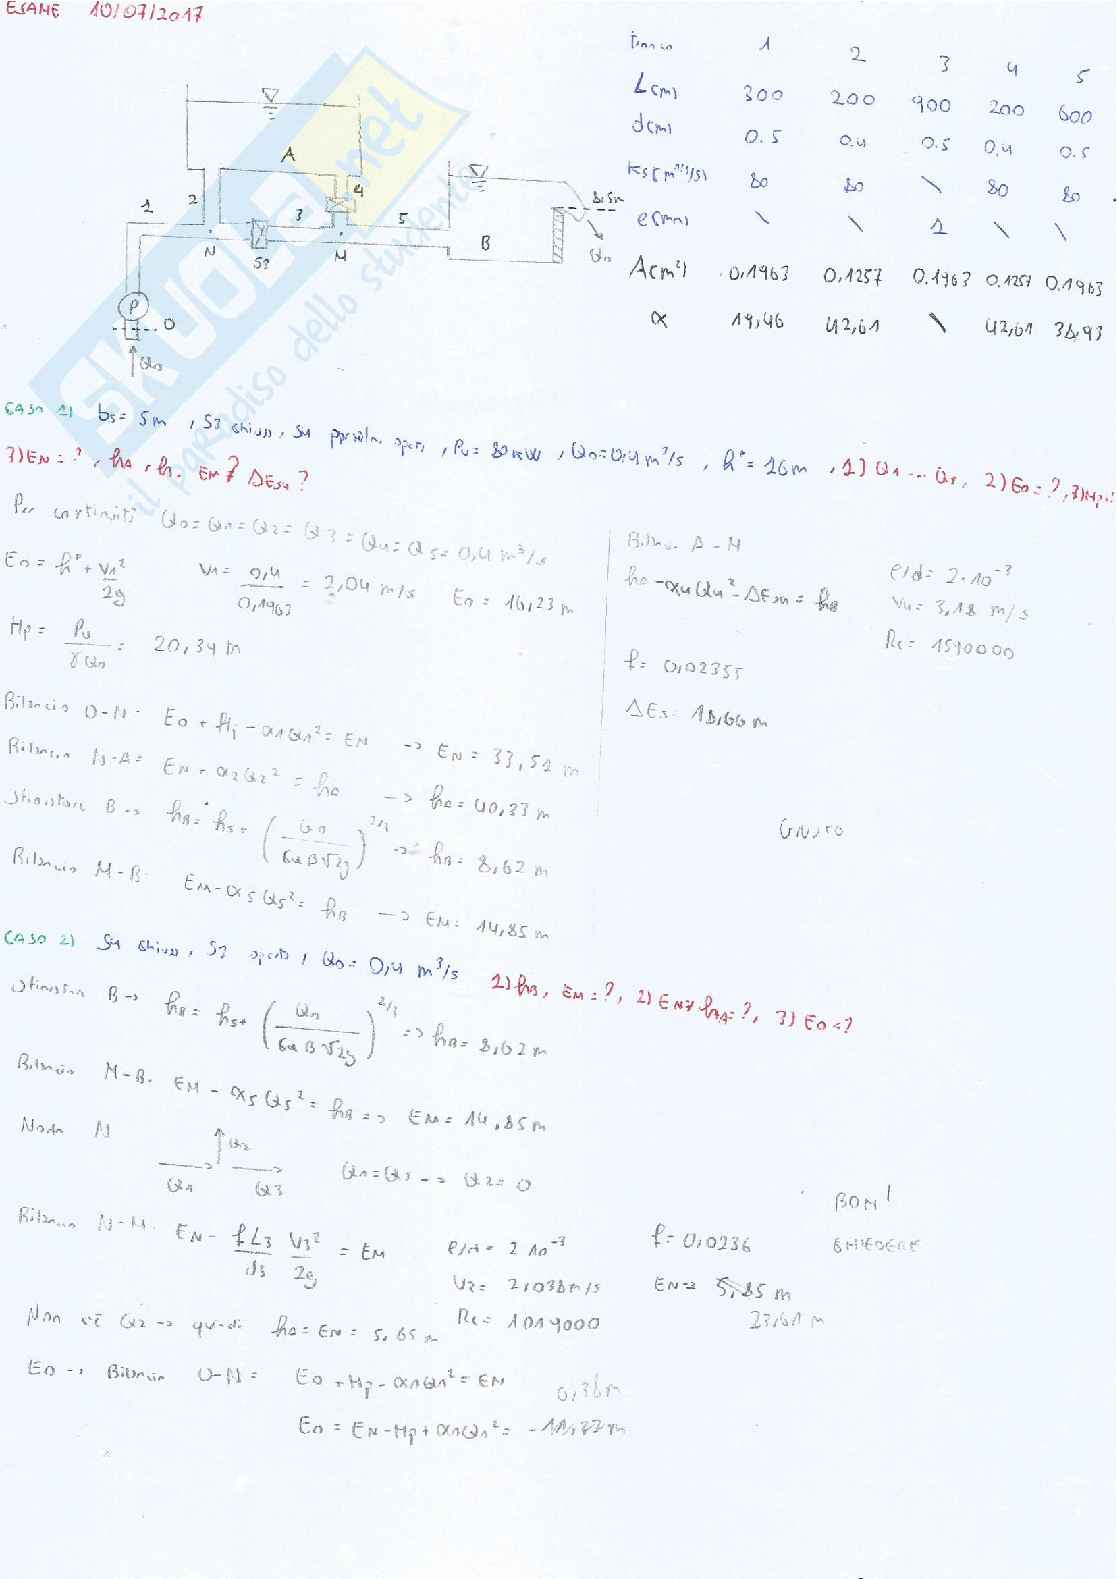 ESAME 10/07/2017
tronco 1 2 3 4 5
L(m) 300 200 900 200 600
d(m) 0.5 0.4 0.5 0,4 0.5
Ks(m^1/3/s) 80 80 \ 80 80
e(mm) \ \ 1 \ \
A(m²) 0,1963 0,1257 0.1963 0.1257 0.1963
α 19,46 42,61 \ 42,61 38,93
A
1
2
3
4
5
N
S3
M
B
P
O
Q0
skuola.net
il paradiso dello studente
CASO 1) bs= 5m, S3 chiusa, S4 aperta, Pu= 80 kW, Q0=0,4 m³/s, h*= 16m, 1) Q1 ... Q5, 2) E0=?,
3) EN=?, hA, h. EM? ΔES4?
Per continuità Q0=Q1=Q2=Q3=Q4=Q5=0,4 m³/s
E0= h*+ V1²/2g V1= 0,4/0,1963 = 2,04 m/s E0= 16,23 m
Hp= Pu/γQ0 = 20,34 m
Bilancio O-N: E0 + Hp - α1Q1²= EN -> EN= 33,51 m
Bilancio N-A= EN - α2Q2² = hA -> hA= 40,33 m
B -> hB= hs+ ( )^2/3 -> hB= 8,62 m
Bilancio M-B: EM-α5Q5²= hB -> EM= 14,85 m
Bilancio A-M
hA-α4Q4²-ΔES4= hB
f= 0,02355
ΔES= 18,66 m
e/d= 2·10⁻³
V4= 3,18 m/s
Re= 1590000
GIUSTO
CASO 2) S4 chiusa, S3 aperta, Q0= 0,4 m³/s 1) hB, EM=?, 2) EN? hA=?, 3) E0=?
B -> hB= hs+ ( )^2/3 => hB= 8,62 m
Bilancio M-B. EM - α5Q5²= hB => EM= 14,85 m
Nodo N
Q2
Q1 Q3
Q1=Q3 -> Q2= 0
Bilancio N-M: EN - fL3/d3 V3²/2g = EM
e/d= 2 10⁻³
V3= 2,038 m/s
Re= 1019000
f= 0,0236
EN= 5,85 m
23,61 m
BOH!
CHIEDERE
Non c'è Q2 -> quindi hA= EN= 5,65 m
E0 -> Bilancio O-N= E0 +Hp - α1Q1²= EN
0,38m
E0= EN-Hp+α1Q1²= -11,22 m